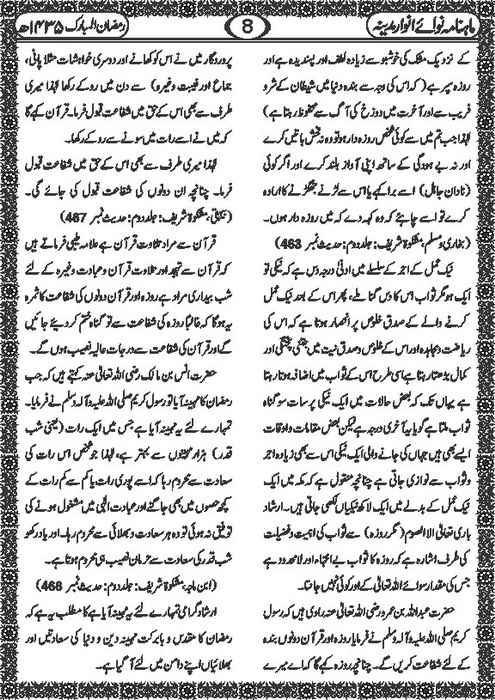 ماہنامہ نوائے انوار مدینہ
8
رمضان المبارک ۱۴۳۵ھ
کے نزدیک مشک کی خوشبو سے زیادہ لطف اور پسندیدہ ہے اور
روزہ سپر ہے (کہ اس کی وجہ سے بندہ دنیا میں شیطان کے شر و
فریب سے اور آخرت میں دوزخ کی آگ سے محفوظ رہتا ہے)
لہٰذا جب تم میں سے کوئی شخص روزہ دار ہو تو وہ نہ فحش باتیں کرے
اور نہ بے ہودگی کے ساتھ اپنی آواز بلند کرے اور اگر کوئی
(نادان جاہل) اسے برا کہے یا اس سے لڑنے جھگڑنے کا ارادہ
کرے تو اسے چاہئے کہ وہ کہہ دے کہ میں روزہ دار ہوں۔
(بخاری و مسلم، مشکوٰۃ شریف: جلد دوم: حدیث نمبر 463)
نیک عمل کے اجر کے سلسلے میں ادنیٰ درجہ دس ہے کہ نیکی تو
ایک ہو مگر ثواب اس کا دس گنا ملے، پھر اس کے بعد نیک عمل
کرنے والے کے صدق خلوص پر انحصار ہوتا ہے کہ اس کی
ریاضت و مجاہدہ اور اس کے خلوص و صدق نیت میں جتنی پختگی اور
کمال بڑھتا رہتا ہے اسی طرح اس کے ثواب میں اضافہ ہوتا رہتا
ہے یہاں تک کہ بعض حالات میں ایک نیکی پر سات سو گناہ
ثواب ملتا ہے گویا یہ آخری درجہ ہے لیکن بعض مقامات و اوقات
ایسے بھی ہیں جہاں کی جانے والی ایک نیکی اس سے بھی زیادہ اجر
و ثواب سے نوازی جاتی ہے چنانچہ منقول ہے کہ مکہ میں ایک
نیک عمل کے بدلے میں ایک لاکھ نیکیاں لکھی جاتی ہیں۔ ارشاد
باری تعالی الا الصوم (مگر روزہ) سے ثواب کی اہمیت و فضیلت
کی طرف اشارہ ہے کہ روزہ کا ثواب بے انتہاء اور لامحدود ہے
جس کی مقدار سوائے اللہ تعالیٰ کے اور کوئی نہیں جانتا۔
حضرت عبداللہ بن عمر و رضی اللہ تعالیٰ عنہ راوی ہیں کہ رسول
کریم صلی اللہ علیہ و آلہ وسلم نے فرمایا روزہ اور قرآن دونوں بندہ
کے لئے شفاعت کریں گے۔ چنانچہ روزہ کہے گا کہ اے میرے
پروردگار میں نے اس کو کھانے اور دوسری خواہشات مثلا پانی،
جماع اور غیبت وغیرہ) سے دن میں روکے رکھا لہٰذا میری
طرف سے بھی اس کے حق میں شفاعت قبول فرما۔ قرآن کہے گا
کہ میں نے اسے رات میں سونے سے روکے رکھا۔
لہٰذا میری طرف سے بھی اس کے حق میں شفاعت قبول
فرما۔ چنانچہ ان دونوں کی شفاعت قبول کی جائے گی۔
(بیہقی، مشکوٰۃ شریف: جلد دوم: حدیث نمبر 467)
قرآن سے مراد تلاوت قرآن ہے علامہ طیبی فرماتے ہیں
کہ قرآن سے تہجد اور تلاوت قرآن و عبادت وغیرہ کے لئے
شب بیداری مراد ہے روزہ اور قرآن دونوں کی شفاعت کا ثمرہ
یہ ہوگا کہ غالبا روزہ کی شفاعت سے تو گناہ ختم کر دیئے جائیں
گے اور قرآن کی شفاعت سے درجات عالیہ نصیب ہوں گے۔
حضرت انس بن مالک رضی اللہ تعالیٰ عنہ کہتے ہیں کہ جب
رمضان کا مہینہ آیا تو رسول کریم صلی اللہ علیہ و آلہ وسلم نے فرمایا۔
تمہارے لئے یہ مہینہ آیا ہے جس میں ایک رات (یعنی شب
قدر) ہزار مہینوں سے بہتر ہے، لہٰذا جو شخص اس رات کی
سعادت سے محروم رہا کہ اسے پوری رات یا کم سے کم رات کے
کچھ حصوں میں بھی جاگنے اور عبادت الٰہی میں مشغول ہونے کی
توفیق نہ ہوئی تو وہ ہر سعادت و بھلائی سے محروم رہا۔ اور یاد رکھو
شب قدر کی سعادت سے حرمان نصیب ہی محروم ہوتا ہے۔
(ابن ماجہ، مشکوٰۃ شریف: جلد دوم: حدیث نمبر 468)
ارشاد گرامی تمہارے لئے یہ مہینہ آیا ہے کا مطلب یہ ہے کہ
رمضان کا مقدس و بابرکت مہینہ دین و دنیا کی سعادتیں اور
بھلائیاں اپنے دامن میں لئے آ گیا ہے۔